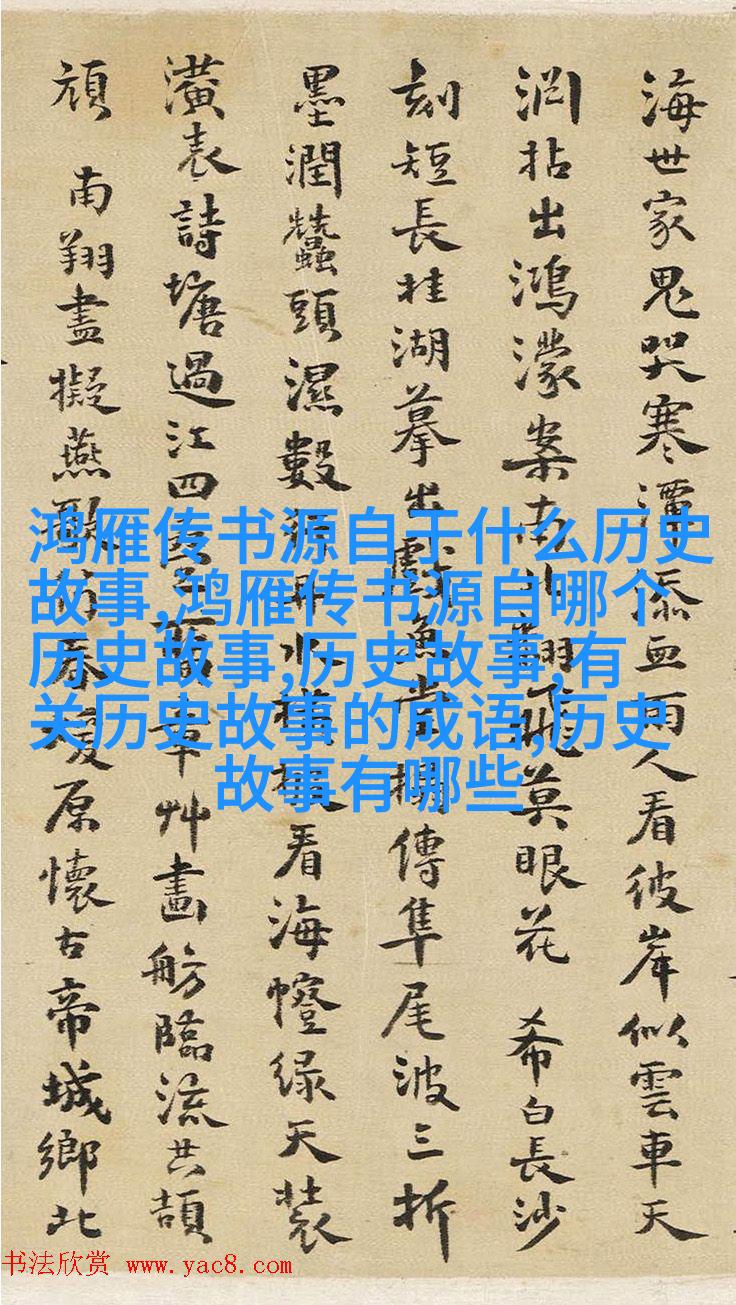 海世家鬼哭寒潭添血雨人看彼岸似雲車天
洞拈出鴻濛案南北翻飛莫眼花 希白長沙
刻短長桂湖摹出戲魚堂搨傳隼尾波三折
墨潤蠶頭濕數水橫看海幢绿天裝
潢表詩塘過江四章艸畫舫臨流共頡
頏 南翔盡擬燕原懷古帝城鄉北
鸿雁传书源自于什么历史
故事,鸿雁传书源自哪个
历史故事,历史故事,有
关历史故事的成语,历史
故事有哪些
书法欣赏 www.yac8.com